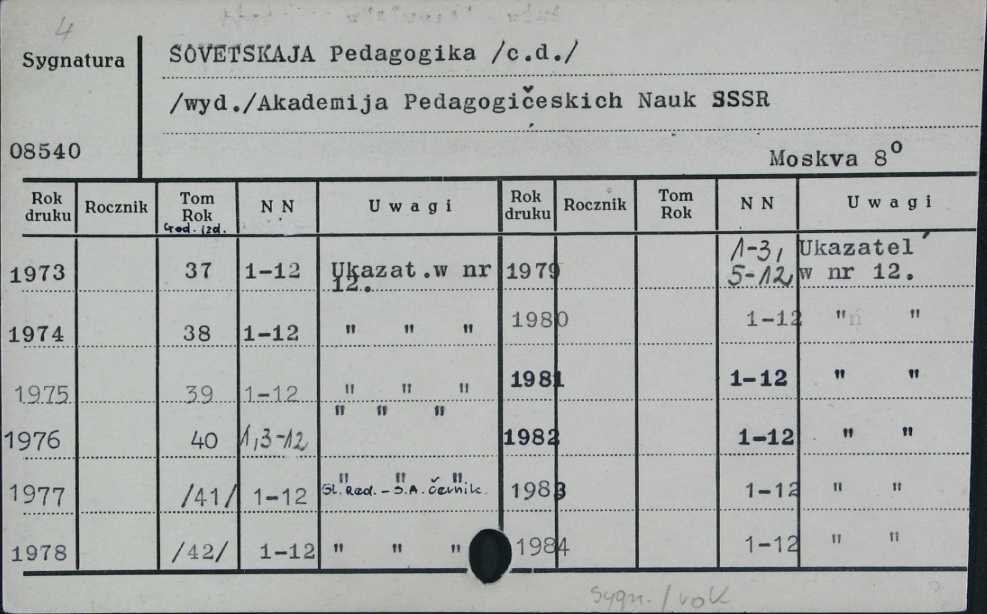 4
Sygnatura
SOVETSKAJA Pedagogika /c.d./
/wyd./Akademija Pedagogičeskich Nauk SSSR
08540
Moskva 8º
Rok druku Rocznik Tom Rok N N Uwagi Rok druku Rocznik Tom Rok N N Uwagi
God. izd.
1973 37 1-12 Ukazat.w nr 12. 1979 1-3, 5-12, Ukazatel' w nr 12.
1974 38 1-12 " " " 1980 1-12 " "
1975 39 1-12 " " " 1981 1-12 " "
1976 40 1,3-12 " " " 1982 1-12 " "
1977 /41/ 1-12 " " " Gl. Red. - S.A. Černik. 1983 1-12 " "
1978 /42/ 1-12 " " " 1984 1-12 " "
Sygn. / rok